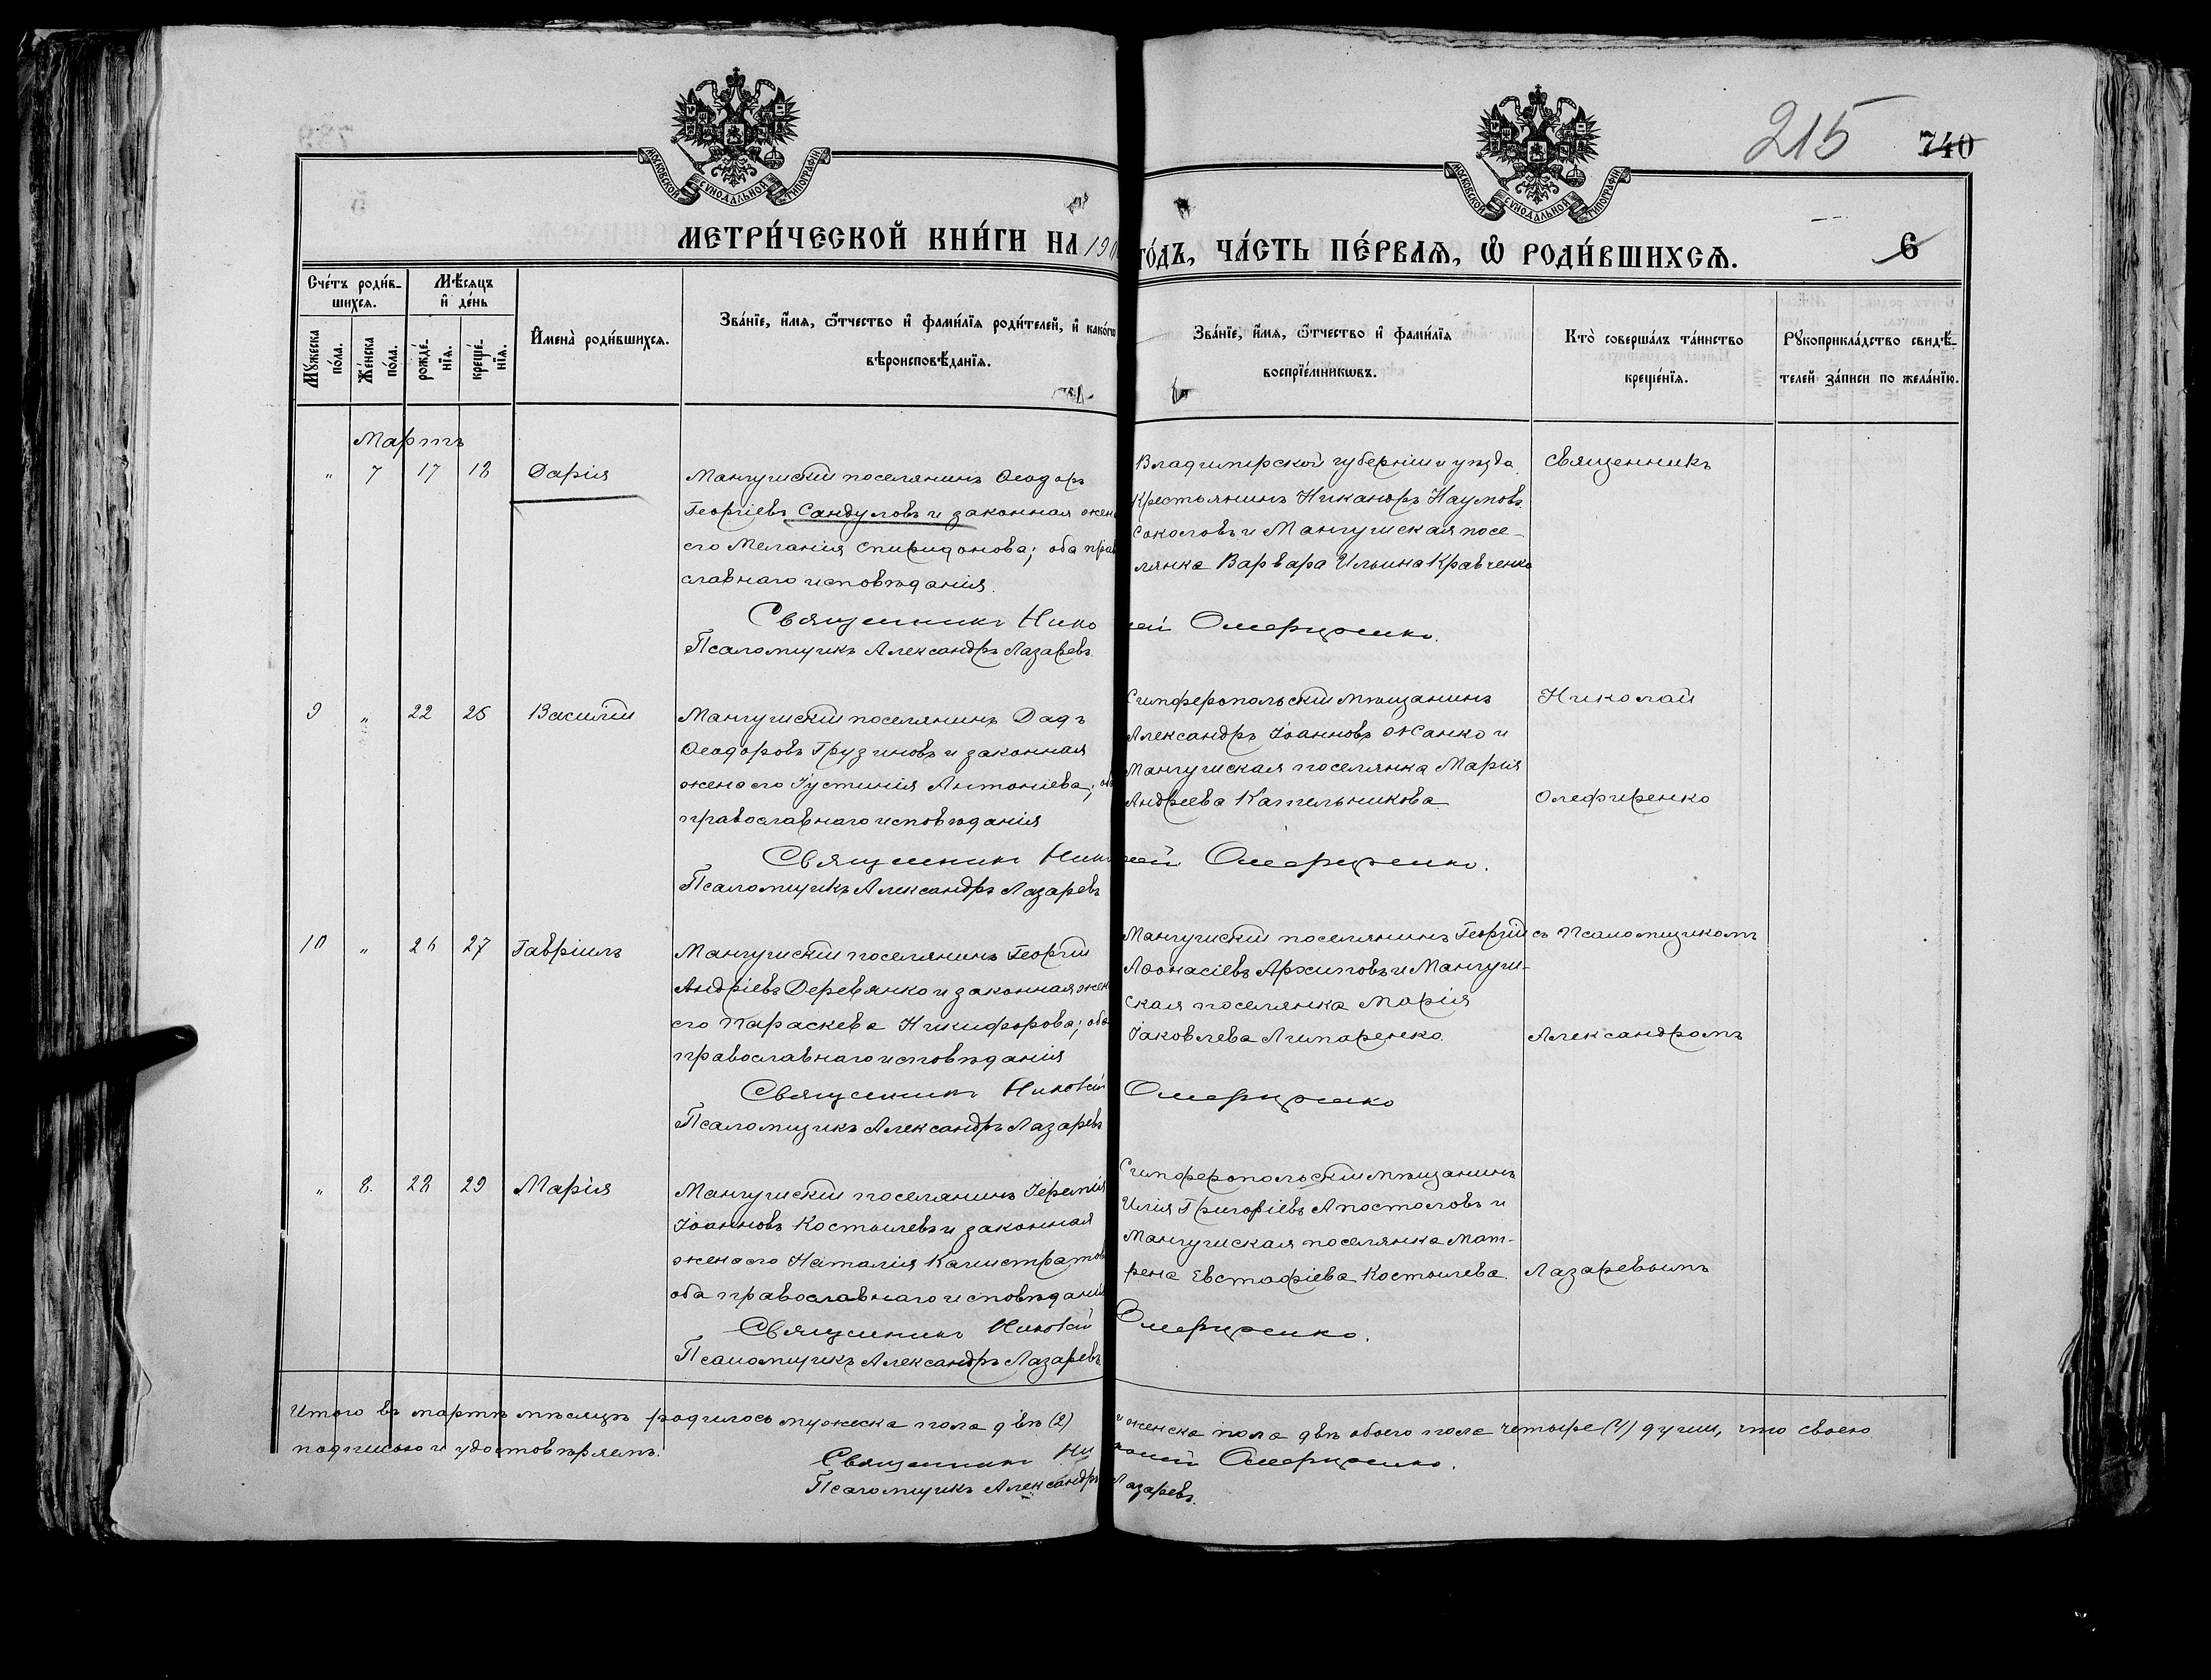 МОСКОВСКОЙ СУНОДАЛЬНОЙ ТИПОГРАФІИ
МОСКОВСКОЙ СУНОДАЛЬНОЙ ТИПОГРАФІИ
215 740
МЕТРИ́ЧЕСКОЙ КНИ́ГИ НА 190
ГО́ДЪ, ЧА́СТЬ ПЕ́РВАѦ, Ѡ҆ РОДИ́ВШИХСѦ. 6
Сче́тъ роди́в-
шихсѧ.
Мѣ́сѧцъ
и҆ де́нь
Мꙋ́жеска
по́ла.
Же́нска
по́ла.
рожде́-
нїѧ.
креще́-
нїѧ.
И҆мена̀ роди́вшихсѧ.
Зва́нїе, и҆́мѧ, ѻ҆́тчество и҆ фами́лїѧ роди́телей, и҆ како́гѡ
вѣроисповѣ́данїѧ.
Зва́нїе, и҆́мѧ, ѻ҆́тчество и҆ фами́лїѧ
воспрїе́мникѡвъ.
Кто̀ соверша́лъ та́инство
креще́нїѧ.
Рꙋкоприкла́дство свидѣ́-
телей за́писи по жела́нїю.
Мартъ
" 7 17 18 Дарія
Мангушскій поселянинъ Ѳеодоръ
Георгіевъ Сандуловъ и законная жен
его Меланія Спиридонова; оба прав
славнаго исповѣданія.
Священникъ Нико
Псаломщикъ Александръ Лазаревъ.
Владимирской губерніи и уѣзда
Крестьянинъ Никаноръ Наумовъ
Соколовъ и Мангушская посе-
лянка Варвара Ильина Кравченко
лай Олефиренко.
Священникъ
9 " 22 25 Василій
Мангушскій поселянинъ Дадъ
Ѳеодоровъ Грузиновъ и законная
жена его Іустинія Антоніева; об
православнаго исповѣданія
Священникъ Нико
Псаломщикъ Александръ Лазаревъ
Симферопольскій мѣщанинъ
Александръ Іоанновъ Жанко и
Мангушская поселянка Марія
Андреева Кательникова
лай Олефиренко.
Николай
Олефиренко
10 " 26 27 Гавріилъ
Мангушскій поселянинъ Георгій
Андріевъ Деревянко и законная жен
его Параскева Никифорова; оба
православнаго исповѣданія
Священникъ Николай
Псаломщикъ Александръ Лазаревъ
Мангушскій поселянинъ Георгій
Аѳонасіевъ Архиповъ и Мангуш-
ская поселянка Марія
Іаковлева Липаренко.
Олефиренко
съ Псаломщикомъ
Александромъ
" 8. 28 29 Марія
Мангушскій поселянинъ Іеремія
Іоанновъ Костылевъ и законная
жена его Наталія Калистратов
оба православнаго исповѣданія
Священникъ Николай
Псаломщикъ Александръ Лазаревъ
Симферопольскій мѣщанинъ
Илія Григоріевъ Апостоловъ и
Мангушская поселянка Мат-
рена Евстафіева Костылева.
Олефиренко.
Лазаревымъ
Итого въ мартѣ мѣсяцѣ родилось мужеска пола двѣ (2)
и женска пола двѣ обоего пола четыре (4) души, что своею
подписью и удостовѣряемъ.
Священникъ Николай Олефиренко.
Псаломщикъ Александръ Лазаревъ.